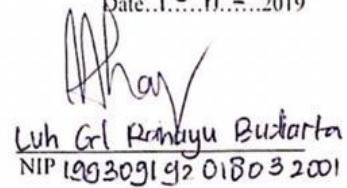 Date..1.....11.. – ...2019
Luh Gd Rahayu Budiarta
NIP 199309192018032001